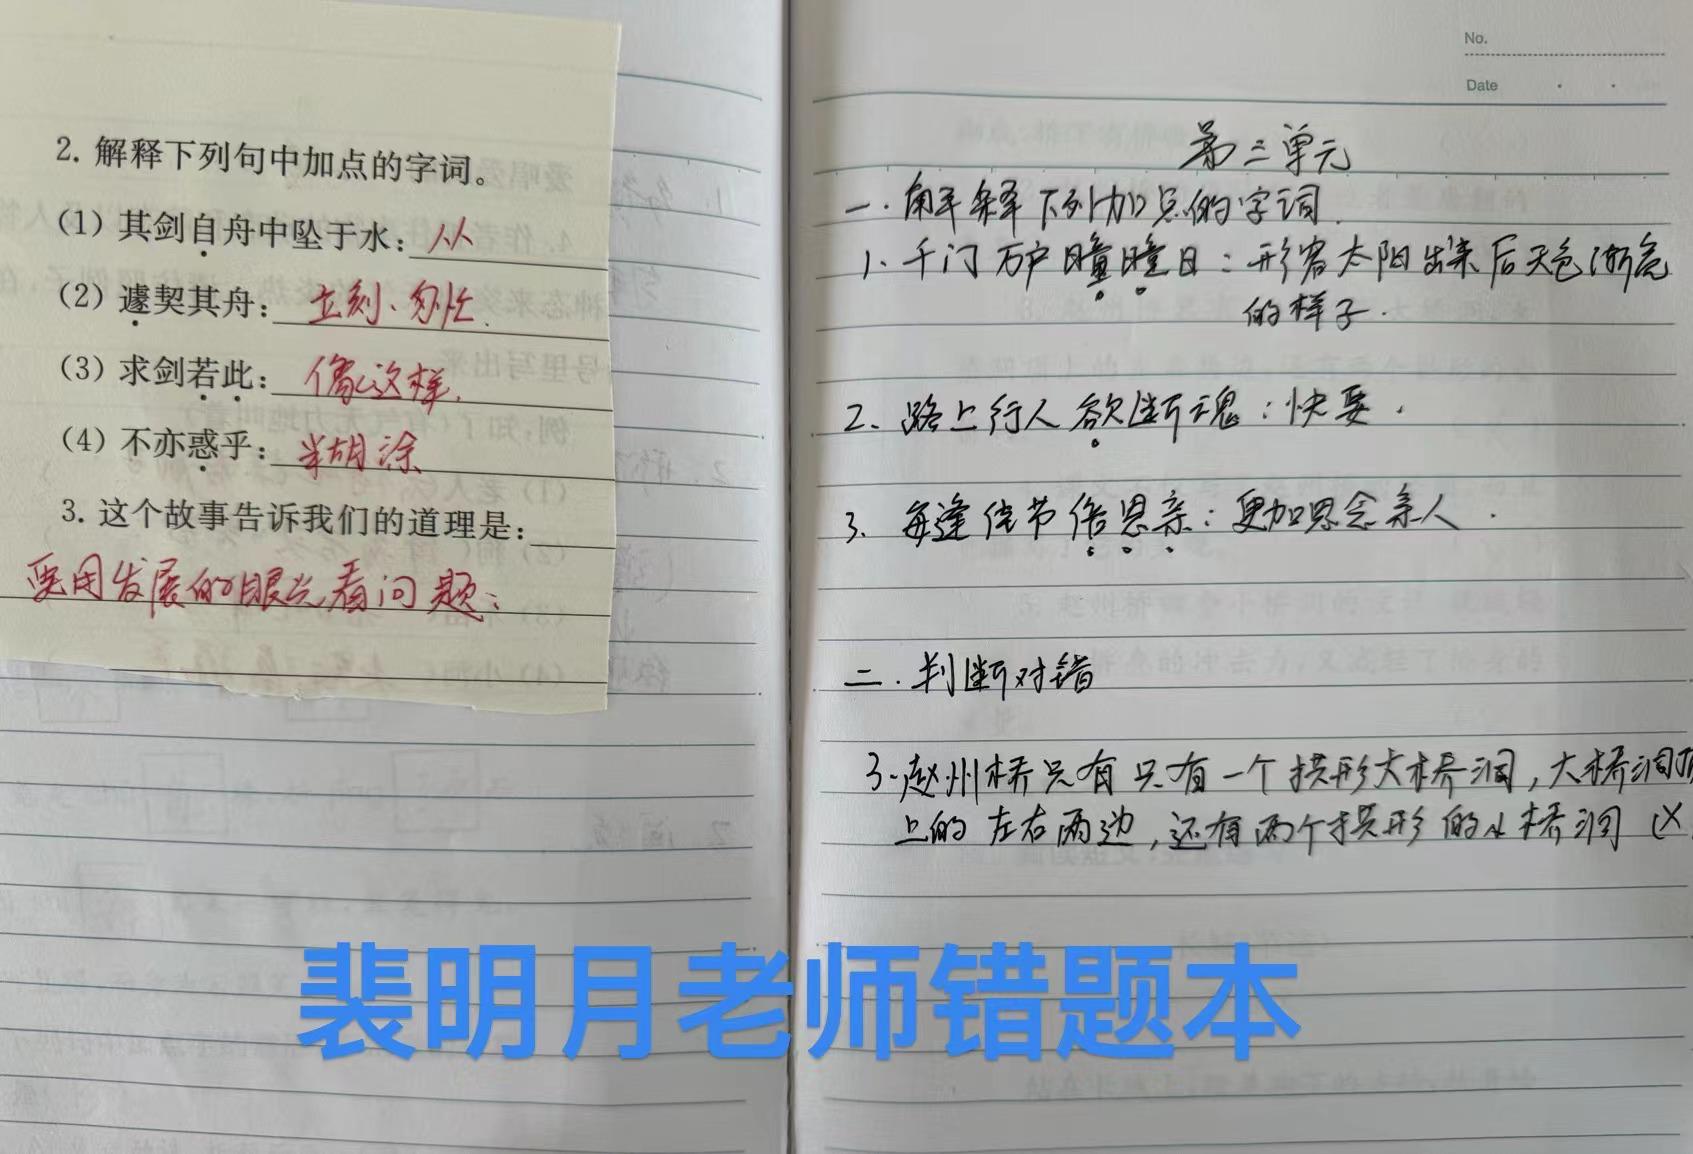 2. 解释下列句中加点的字词。
(1) 其剑自舟中坠于水：从
(2) 遽契其舟：立刻、匆忙.
(3) 求剑若此：像这样.
(4) 不亦惑乎：糊涂
3. 这个故事告诉我们的道理是：
要用发展的眼光看问题；
No.
Date
第三单元
一. 解释下列加点的字词.
1. 千门万户曈曈日：形容太阳出来后天色渐亮
的样子.
2、路上行人欲断魂：快要.
3. 每逢佳节倍思亲：更加思念亲人.
二. 判断对错
3. 赵州桥只有只有一个拱形大桥洞，大桥洞顶
上的左右两边，还有两个拱形的小桥洞（×
裴明月老师错题本